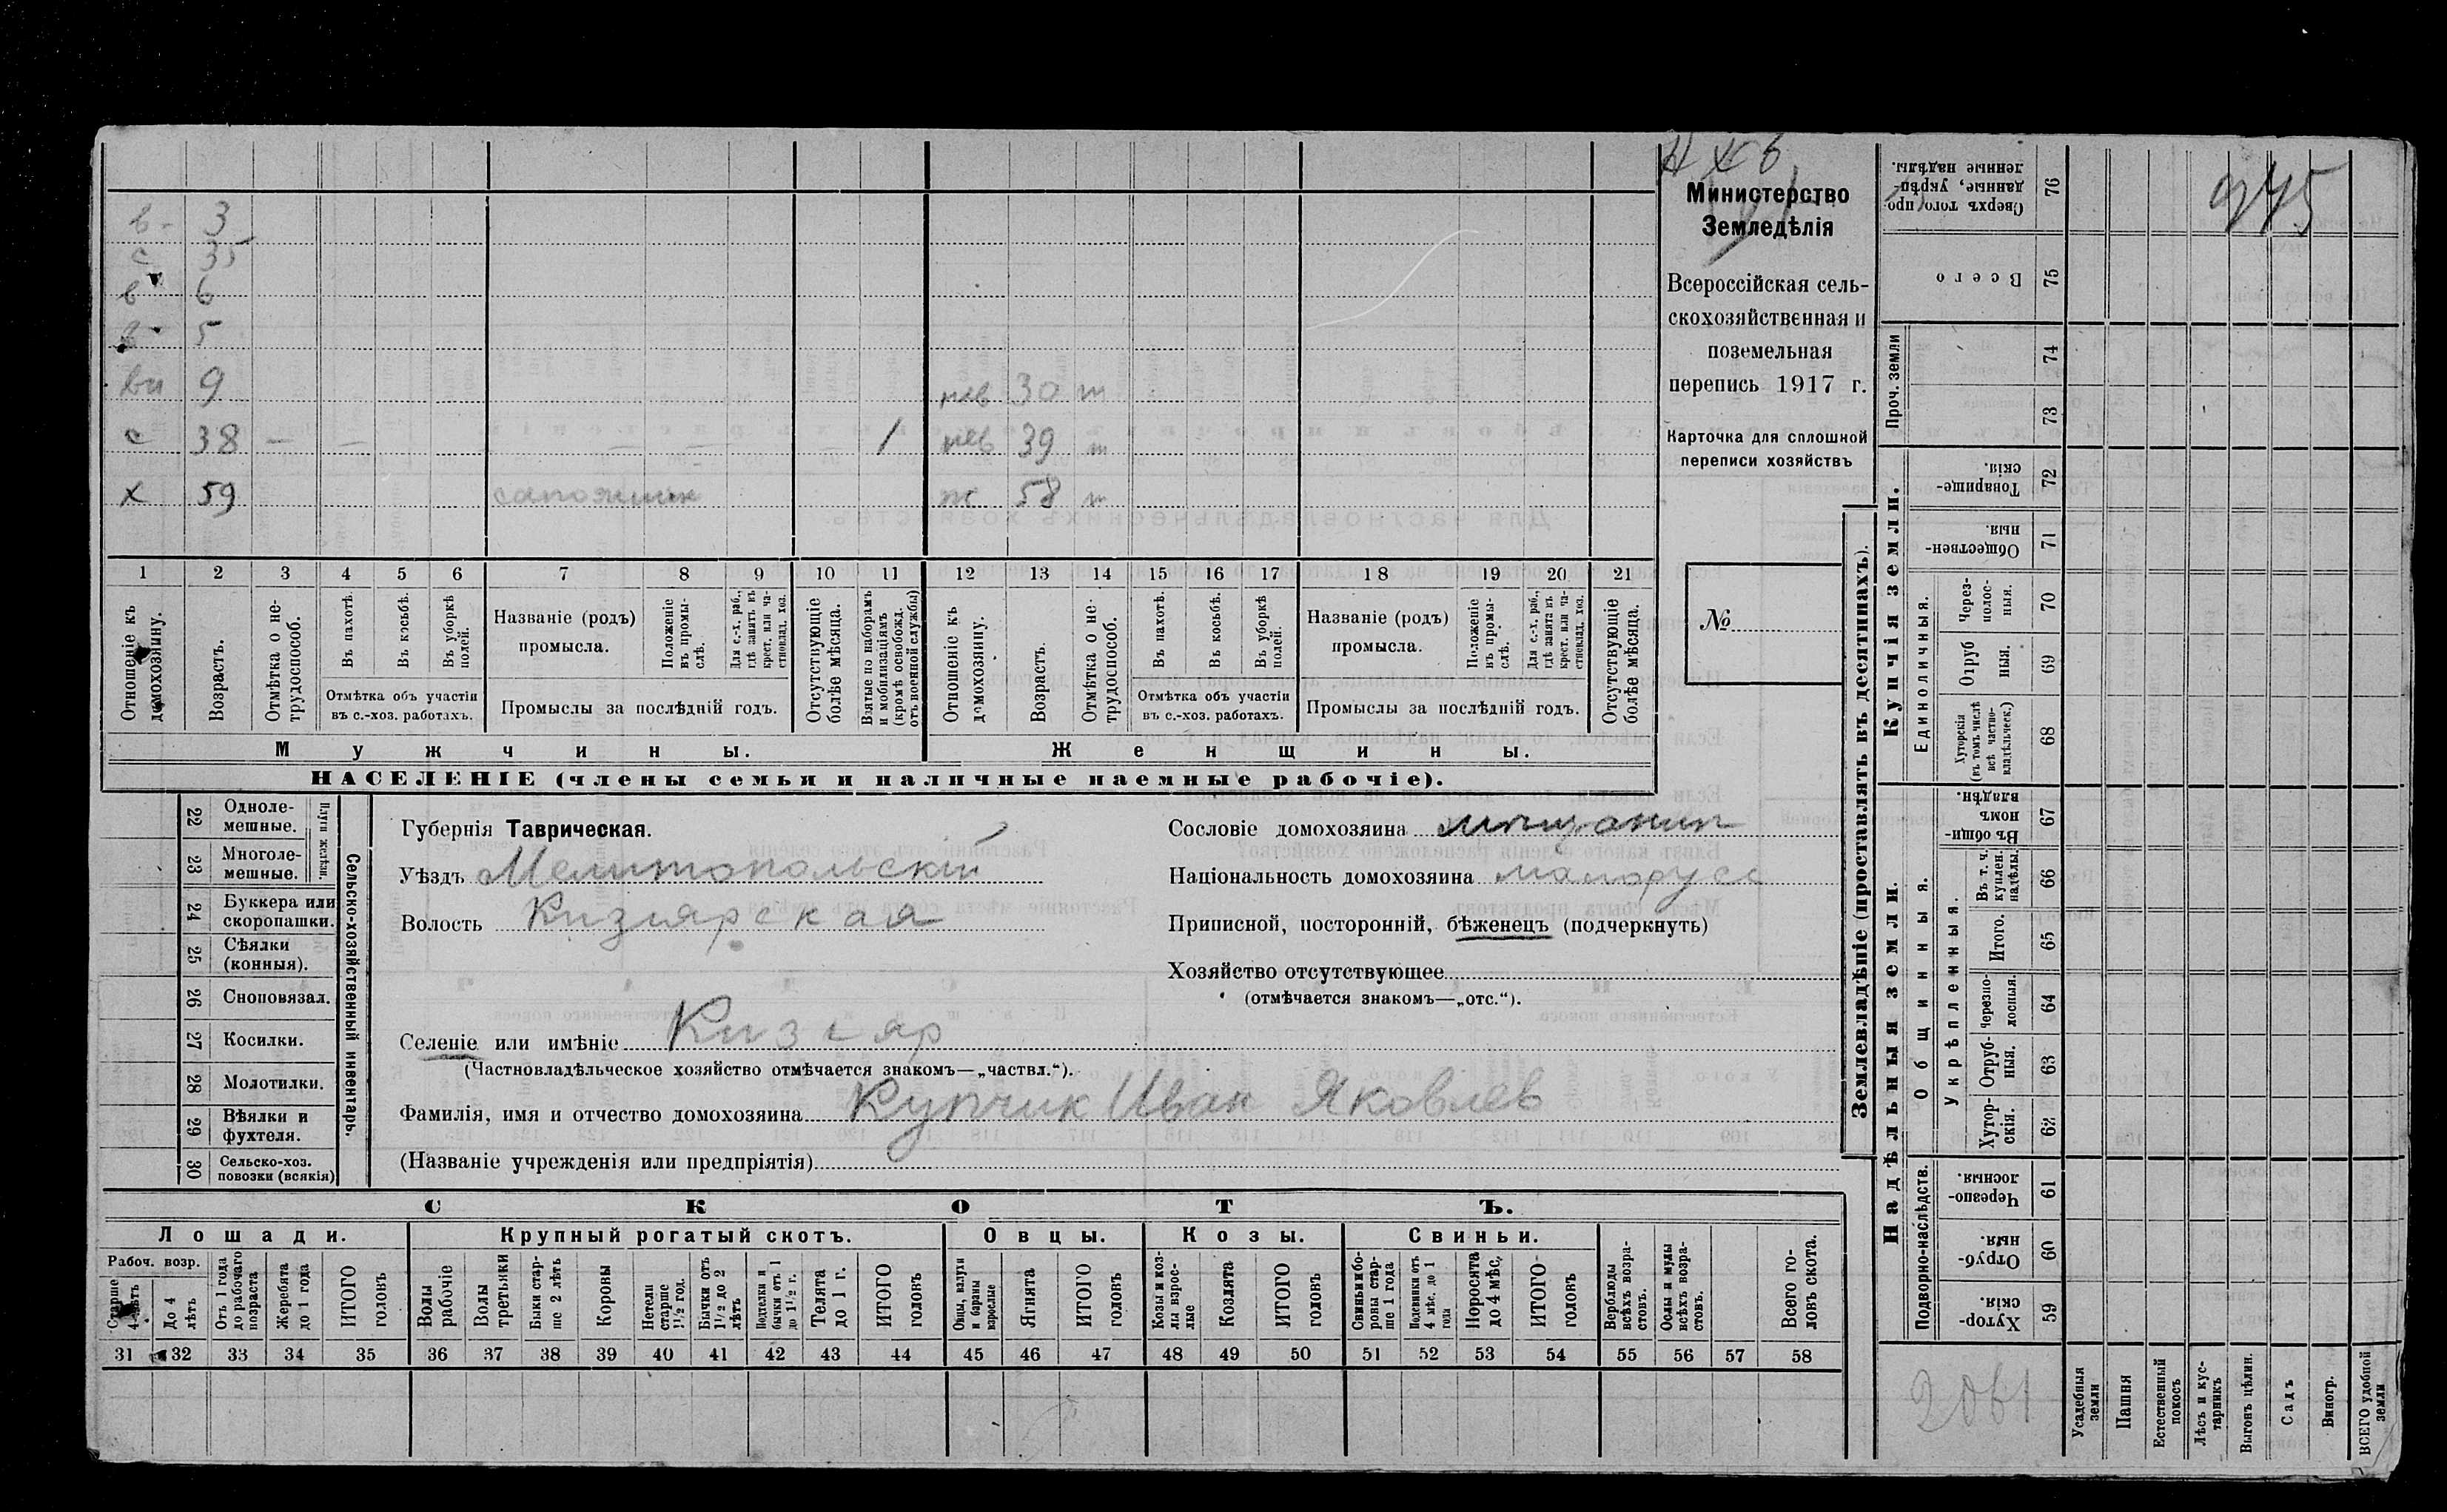 Н Х Б
Министерство
Земледѣлія
Всероссійская сель-
скохозяйственная и
поземельная
перепись 1917 г.
Карточка для сплошной
переписи хозяйствъ
№
в - 3
с 35
в 6
в 5
вн 9 нев 30 т
с 38 — — — — — 1 нев 39 т
х 59 сапожник ж 58 т
1 2 3 4 5 6 7 8 9 10 11 12 13 14 15 16 17 18 19 20 21
Отношеніе къ домохозяину.
Возрастъ.
Отмѣтка о не-трудоспособ.
Въ пахотѣ.
Въ косьбѣ.
Въ уборкѣ полей.
Отмѣтка объ участіи
въ с.-хоз. работахъ.
Названіе (родъ)
промысла.
Положеніе въ промы-слѣ.
Для с.-х. раб., гдѣ занятъ въ крест. или ча-стновлад. хоз.
Промыслы за послѣдній годъ.
Отсутствующіе болѣе мѣсяца.
Взятые по наборамъ и мобилизаціямъ (кромѣ освобожд. отъ военной службы)
Отношеніе къ домохозяину.
Возрастъ.
Отмѣтка о не-трудоспособ.
Въ пахотѣ.
Въ косьбѣ.
Въ уборкѣ полей.
Отмѣтка объ участіи
въ с.-хоз. работахъ.
Названіе (родъ)
промысла.
Положеніе въ промы-слѣ.
Для с.-х. раб., гдѣ занята въ крест. или ча-стновлад. хоз.
Промыслы за послѣдній годъ.
Отсутствующіе болѣе мѣсяца.
Мужчины. Женщины.
НАСЕЛЕНІЕ (члены семьи и наличные наемные рабочіе).
22 Одноле-мешные.
23 Многоле-мешные.
Плуги желѣзн.
24 Буккера или скоропашки.
25 Сѣялки (конныя).
26 Сноповязал.
27 Косилки.
28 Молотилки.
29 Вѣялки и фухтеля.
30 Сельско-хоз. повозки (всякія)
Сельско-хозяйственный инвентарь.
Губернія Таврическая.
Уѣздъ Мелитопольскій
Волость Кизиярская
Селеніе или имѣніе Кизияр
(Частновладѣльческое хозяйство отмѣчается знакомъ—„частвл.“).
Фамилія, имя и отчество домохозяина Купчик Иван Яковлев
(Названіе учрежденія или предпріятія)
Сословіе домохозяина мѣщанин
Національность домохозяина малорусс
Приписной, посторонній, бѣженецъ (подчеркнуть)
Хозяйство отсутствующее
(отмѣчается знакомъ—„отс.“).
СКОТЪ.
Лошади. Крупный рогатый скотъ. Овцы. Козы. Свиньи.
Рабоч. возр.
Старше 4-лѣтъ
До 4 лѣтъ
Отъ 1 года до рабочаго возраста
Жеребята до 1 года
ИТОГО головъ
Волы рабочіе
Волы третьяки
Быки стар-ше 2 лѣтъ
Коровы
Нетели старше 1½ год.
Бычки отъ 1½ до 2 лѣтъ
Подтелки и бычки отъ 1 до 1½ г.
Телята до 1 г.
ИТОГО головъ
Овцы, валухи и бараны взрослые
Ягнята
ИТОГО головъ
Козы и коз-лы взрос-лые
Козлята
ИТОГО головъ
Свиньи и бо-ровы стар-ше 1 года
Подсвинки отъ 4 мѣс. до 1 года
Поросята до 4 мѣс.
ИТОГО головъ
Верблюды всѣхъ возра-стовъ.
Ослы и мулы всѣхъ возра-стовъ.
Всего го-ловъ скота.
31 32 33 34 35 36 37 38 39 40 41 42 43 44 45 46 47 48 49 50 51 52 53 54 55 56 57 58
Землевладѣніе (проставлять въ десятинахъ).
Надѣльныя земли. Купчія земли. Проч. земли
Подворно-наслѣдств.
Общинныя.
Укрѣпленныя.
Единоличныя.
59 Хутор-скія.
60 Отруб-ныя.
61 Черезпо-лосныя.
62 Хутор-скія.
63 Отруб-ныя.
64 Черезпо-лосныя.
65 Итого.
66 Въ т. ч. куплен. надѣлы.
67 Въ общи-номъ владѣн.
68 Хуторскія (въ томъ числѣ всѣ частно-владѣльческ.)
69 Отруб ныя.
70 Через-полос-ныя.
71 Обществен-ныя.
72 Товарище-скія.
73
74
75 Всего
76 Сверхъ того про-данные, укрѣп-ленные надѣлы.
Усадебныя земли
Пашня
Естественный покосъ
Лѣсъ и кус-тарникъ
Выгонъ цѣлин.
Садъ
Виногр.
ВСЕГО удобной земли
2061